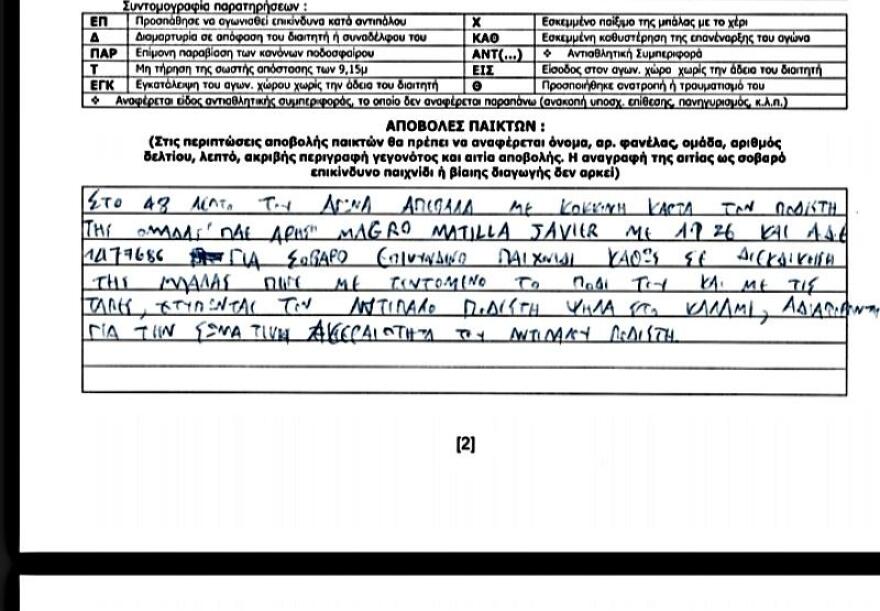 Συντομογραφία παρατηρήσεων :
ΕΠ Προσπάθησε να αγωνισθεί επικίνδυνα κατά αντιπάλου Χ Εσκεμμένο παίξιμο της μπάλας με το χέρι
Δ Διαμαρτυρία σε απόφαση του διαιτητή ή συναδέλφου του ΚΑΘ Εσκεμμένη καθυστέρηση της επανέναρξης του αγώνα
ΠΑΡ Επίμονη παραβίαση των κανόνων ποδοσφαίρου ΑΝΤ(...) ❖ Αντιαθλητική Συμπεριφορά
Τ Μη τήρηση της σωστής απόστασης των 9,15μ ΕΙΣ Είσοδος στον αγων. χώρο χωρίς την άδεια του διαιτητή
ΕΓΚ Εγκατάλειψη του αγων. χώρου χωρίς την άδεια του διαιτητή Θ Προσποιήθηκε ανατροπή ή τραυματισμό του
❖ Αναφέρεται είδος αντιαθλητικής συμπεριφοράς, το οποίο δεν αναφέρεται παραπάνω (ανακοπή υποσχ. επίθεσης, πανηγυρισμός, κ.λ.π.)
ΑΠΟΒΟΛΕΣ ΠΑΙΚΤΩΝ :
(Στις περιπτώσεις αποβολής παικτών θα πρέπει να αναφέρεται όνομα, αρ. φανέλας, ομάδα, αριθμός
δελτίου, λεπτό, ακριβής περιγραφή γεγονότος και αιτία αποβολής. Η αναγραφή της αιτίας ως σοβαρό
επικίνδυνο παιχνίδι ή βίαιης διαγωγής δεν αρκεί)
ΣΤΟ 48 ΛΕΠΤΟ ΤΟΥ ΑΓΩΝΑ ΑΠΕΒΑΛΑ ΜΕ ΚΟΚΚΙΝΗ ΚΑΡΤΑ ΤΟΝ ΠΟΔ/ΣΤΗ
ΤΗΣ ΟΜΑΔΑΣ "ΠΑΕ ΑΡΗΣ" MAGRO MATILLA JAVIER ΜΕ ΑΡ 26 ΚΑΙ Α.Δ.
1077686 ΓΙΑ ΣΟΒΑΡΟ ΕΠΙΚΥΝΔΙΝΟ ΠΑΙΧΝΙΔΙ ΚΑΘΩΣ ΣΕ ΔΙΕΚΔΙΚΗΣΗ
ΤΗΣ ΜΠΑΛΑΣ ΠΗΓΕ ΜΕ ΤΕΝΤΟΜΕΝΟ ΤΟ ΠΟΔΙ ΤΟΥ ΚΑΙ ΜΕ ΤΙΣ
ΤΑΠΕΣ, ΧΤΥΠΩΝΤΑΣ ΤΟΝ ΑΝΤΙΠΑΛΟ ΠΟΔ/ΣΤΗ ΨΗΛΑ ΣΤΟ ΚΑΛΑΜΙ, ΑΔΙΑΦΟΡΩΝΤΑΣ
ΓΙΑ ΤΗΝ ΣΩΜΑΤΙΚΗ ΑΚΕΡΑΙΟΤΗΤΑ ΤΟΥ ΑΝΤΙΠΑΛΟΥ ΠΟΔ/ΣΤΗ.
[2]